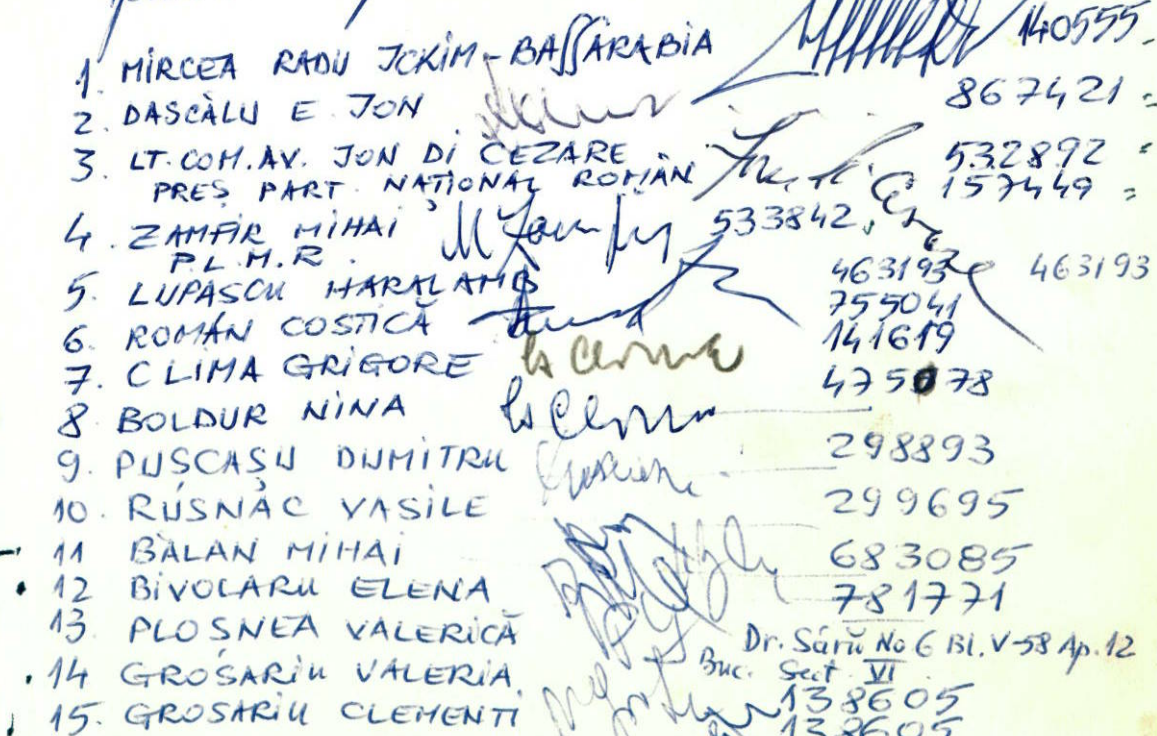 1. MIRCEA RADU JCKIM-BASSARABIA 140555
2. DASCĂLU E JON 867421
3. LT. COM. AV. JON DI CEZARE 532892
PREȘ PART. NAȚIONAL ROMÂN 157449
4. ZAMFIR MIHAI 533842
P.L.M.R.
5. LUPAȘCU HARALAMB 463193 463193
755041
6. ROMÂN COSTICĂ 141619
7. CLIMA GRIGORE 475078
8 BOLDUR NINA
9. PUȘCAȘU DUMITRU 298893
10. RUSNAC VASILE 299695
11 BĂLAN MIHAI 683085
12 BIVOLARU ELENA 781771
13. PLOȘNEA VALERICĂ Dr. Sării No 6 Bl. V-58 Ap. 12
Buc. Sect. VI
14 GROSARIU VALERIA 138605
15. GROSARIU CLEMENTI 138605